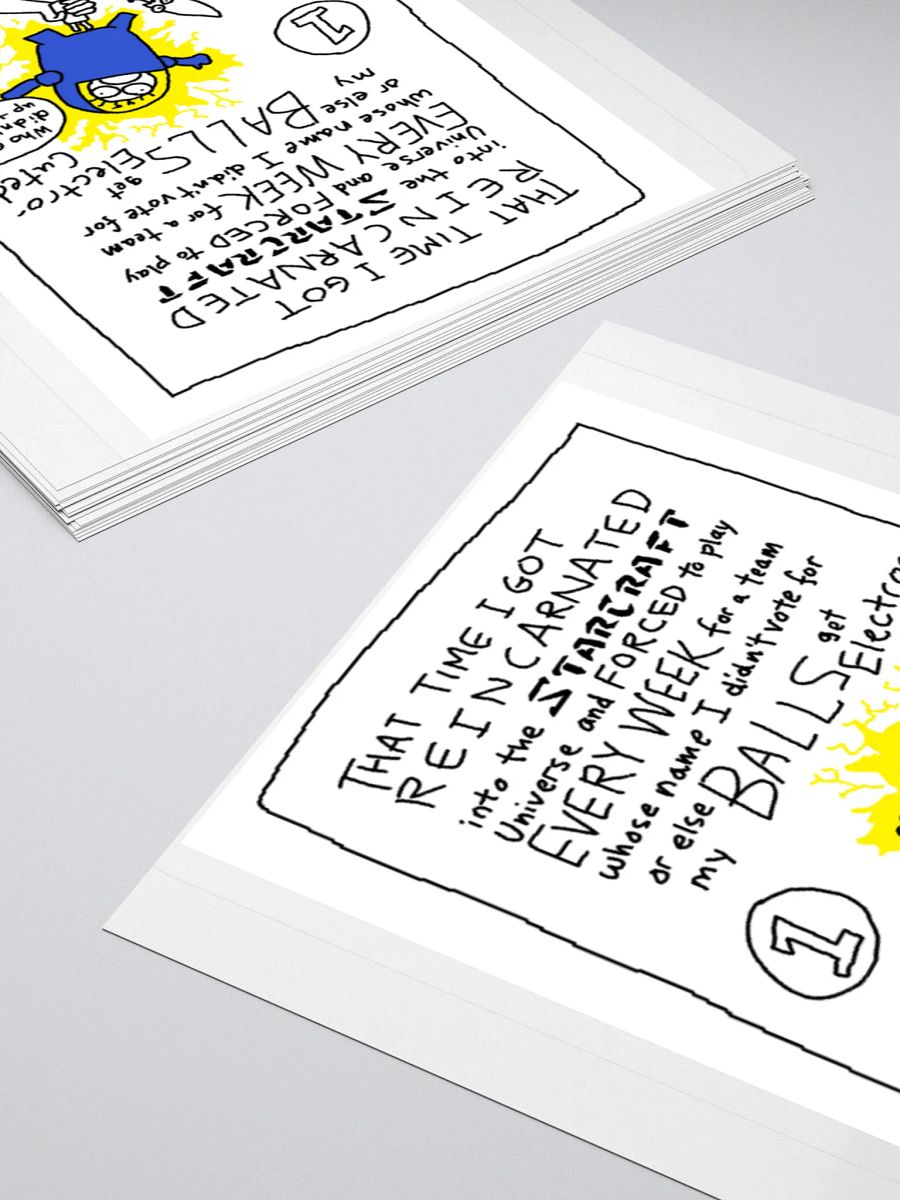 THAT TIME I GOT
REINCARNATED
into the STARCRAFT
Universe and FORCED to play
EVERY WEEK for a team
whose name I didn't vote for
or else
my BALLS get
Electro-
cuted
Who
didn
up-
1
THAT TIME I GOT
REINCARNATED
into the STARCRAFT
Universe and FORCED to play
EVERY WEEK for a team
whose name I didn't vote for
or else
my BALLS get
Electro
1